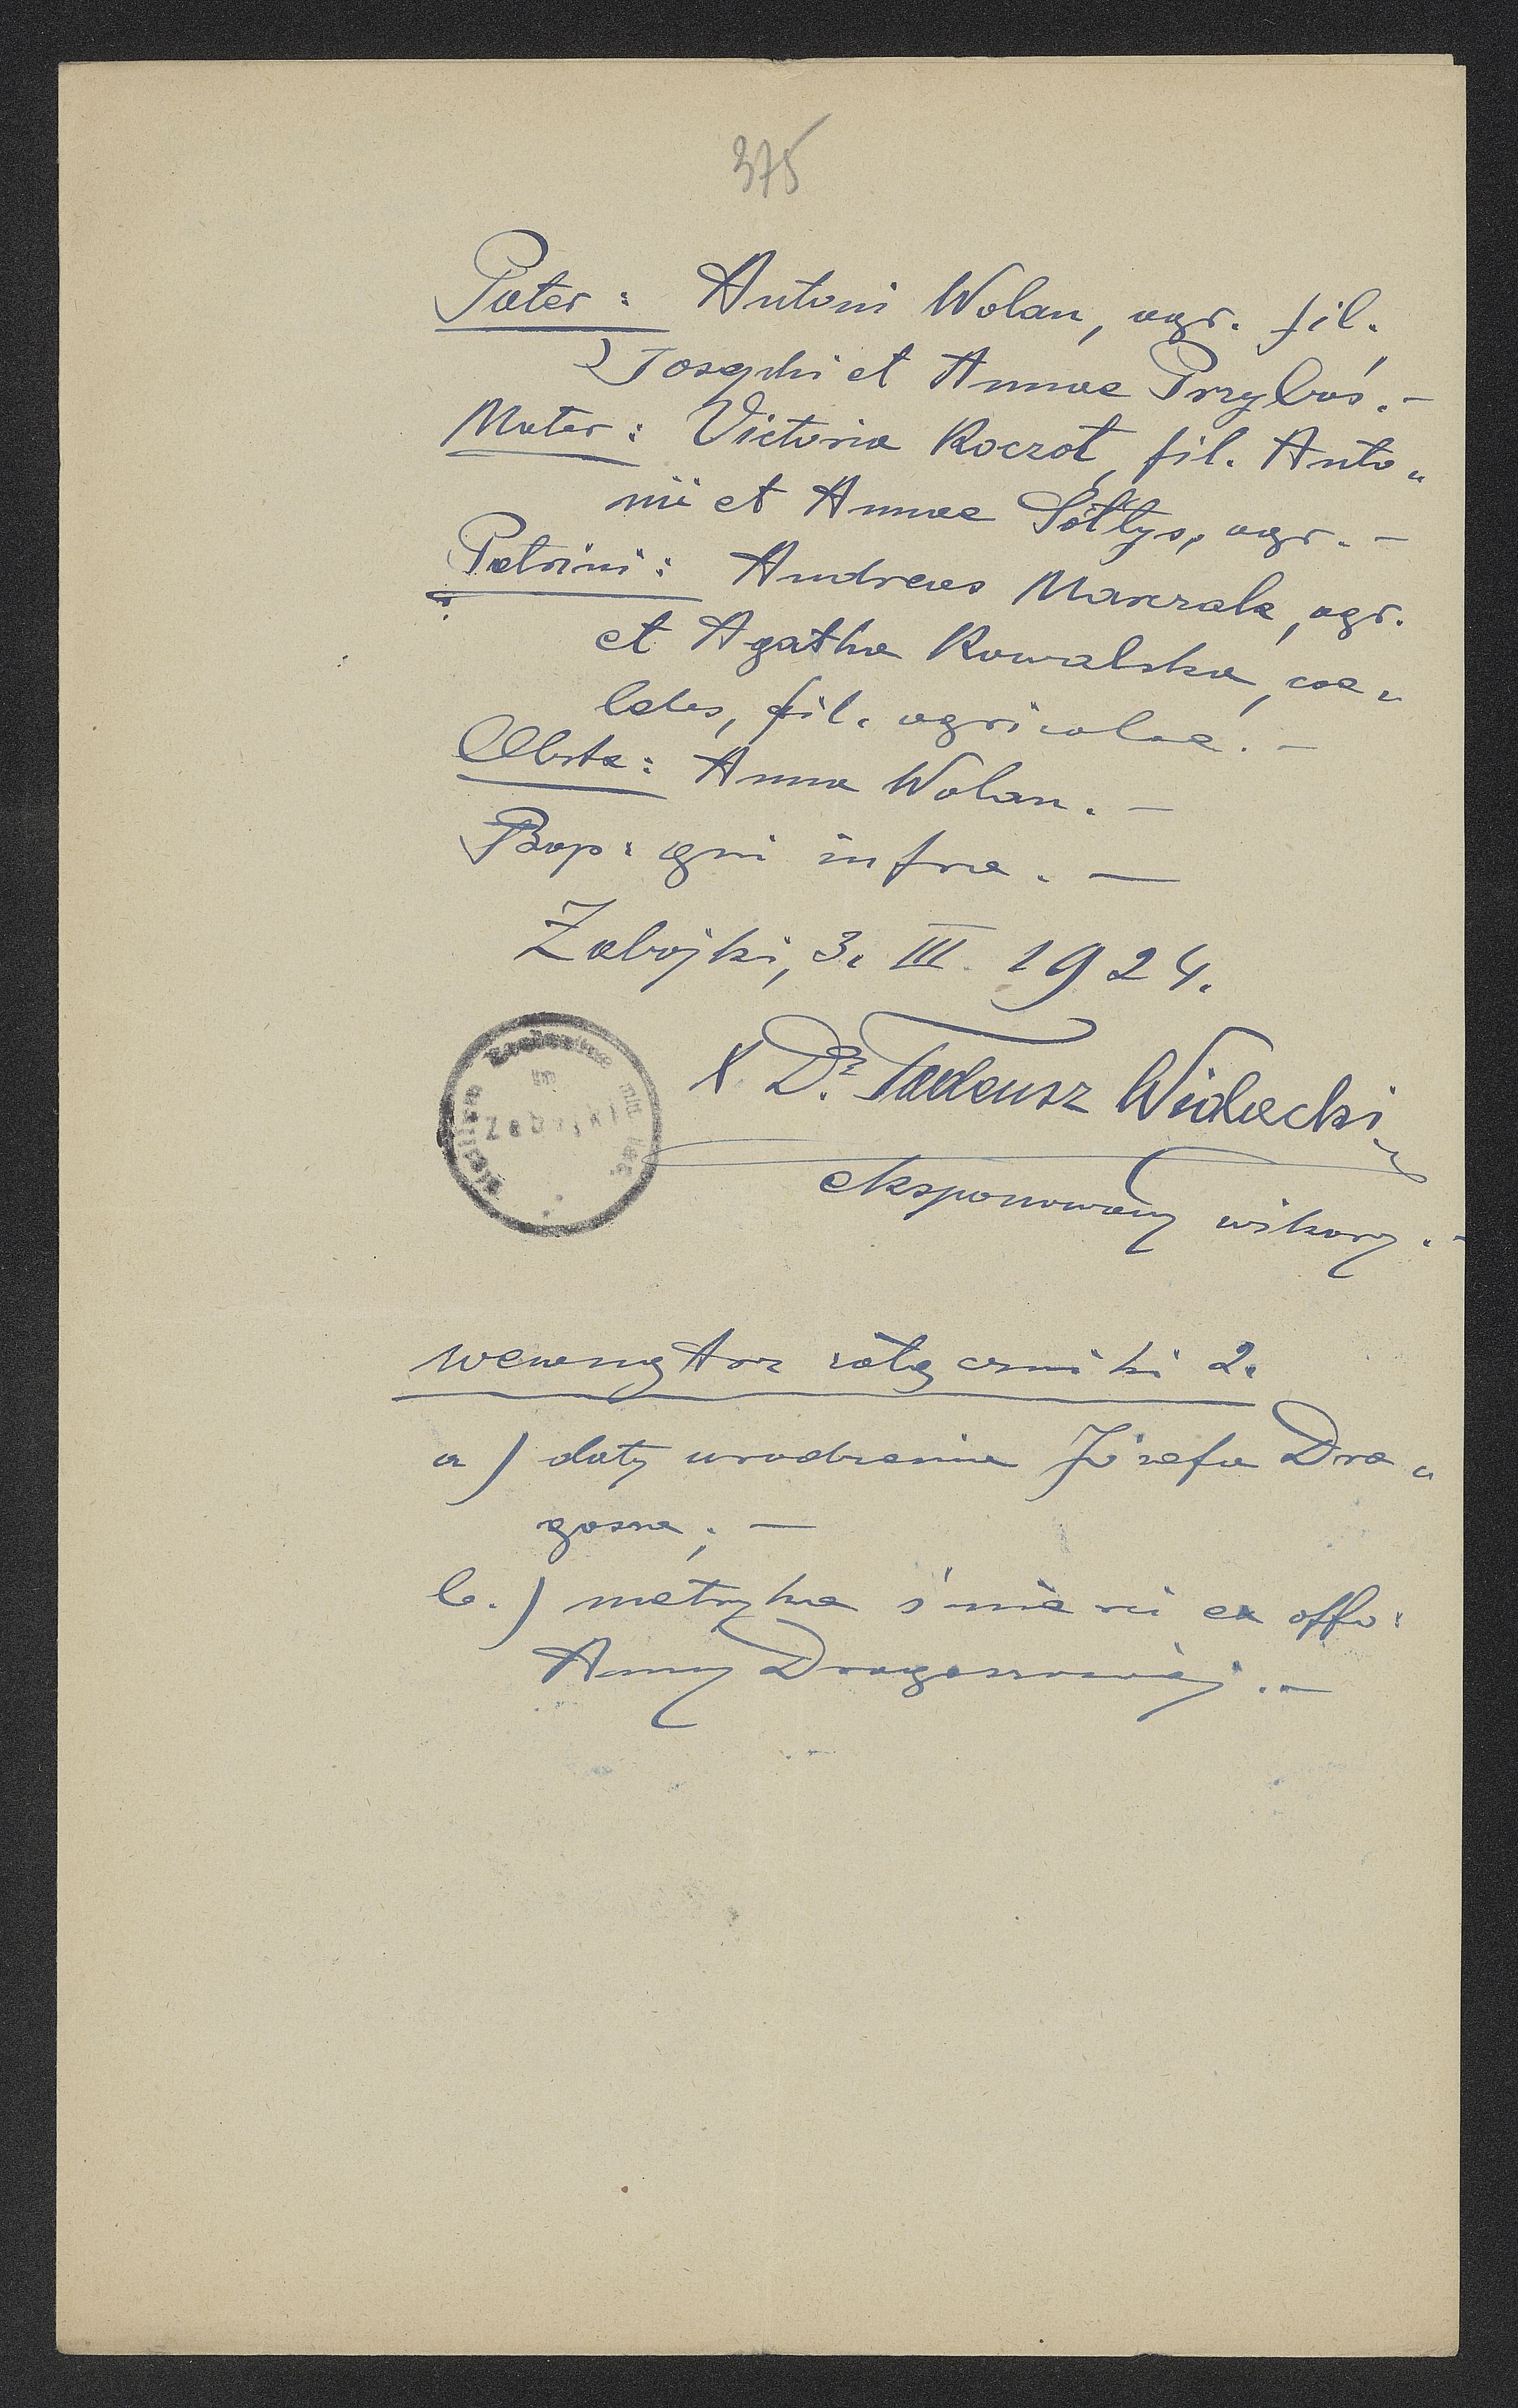 375
Pater: Antoni Wolan, agr. fil.
Josephi et Annae Przyboś. –
Mater: Victoria Koczot, fil. Anto„
nii et Annae Sołtys, agr. –
Patrini: Andreas Marczak, agr.
et Agatha Kowalska, coe„
lebs, fil. agricolae. –
Obste: Anna Wolan. –
Bap: qui infra. —
Zabojki, 3. III. 1924.
X Dr. Tadeusz Widacki
eksponowany wikary. –
Zabojki
wewnątrz załączniki 2.
a) daty urodzenia Józefa Dra„
gosza; —
b.) metryka śmierci ex offo:
Anny Dragoszowej. –